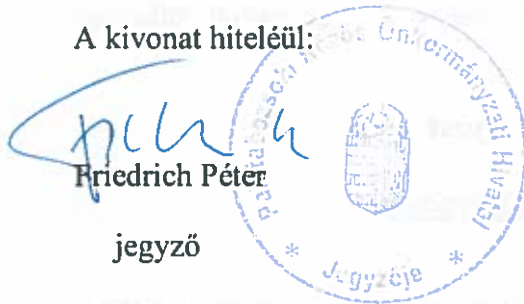 A kivonat hiteléül:
Friedrich Péter
jegyző
Közös Önkormányzati Hivatal
* Jegyzője *